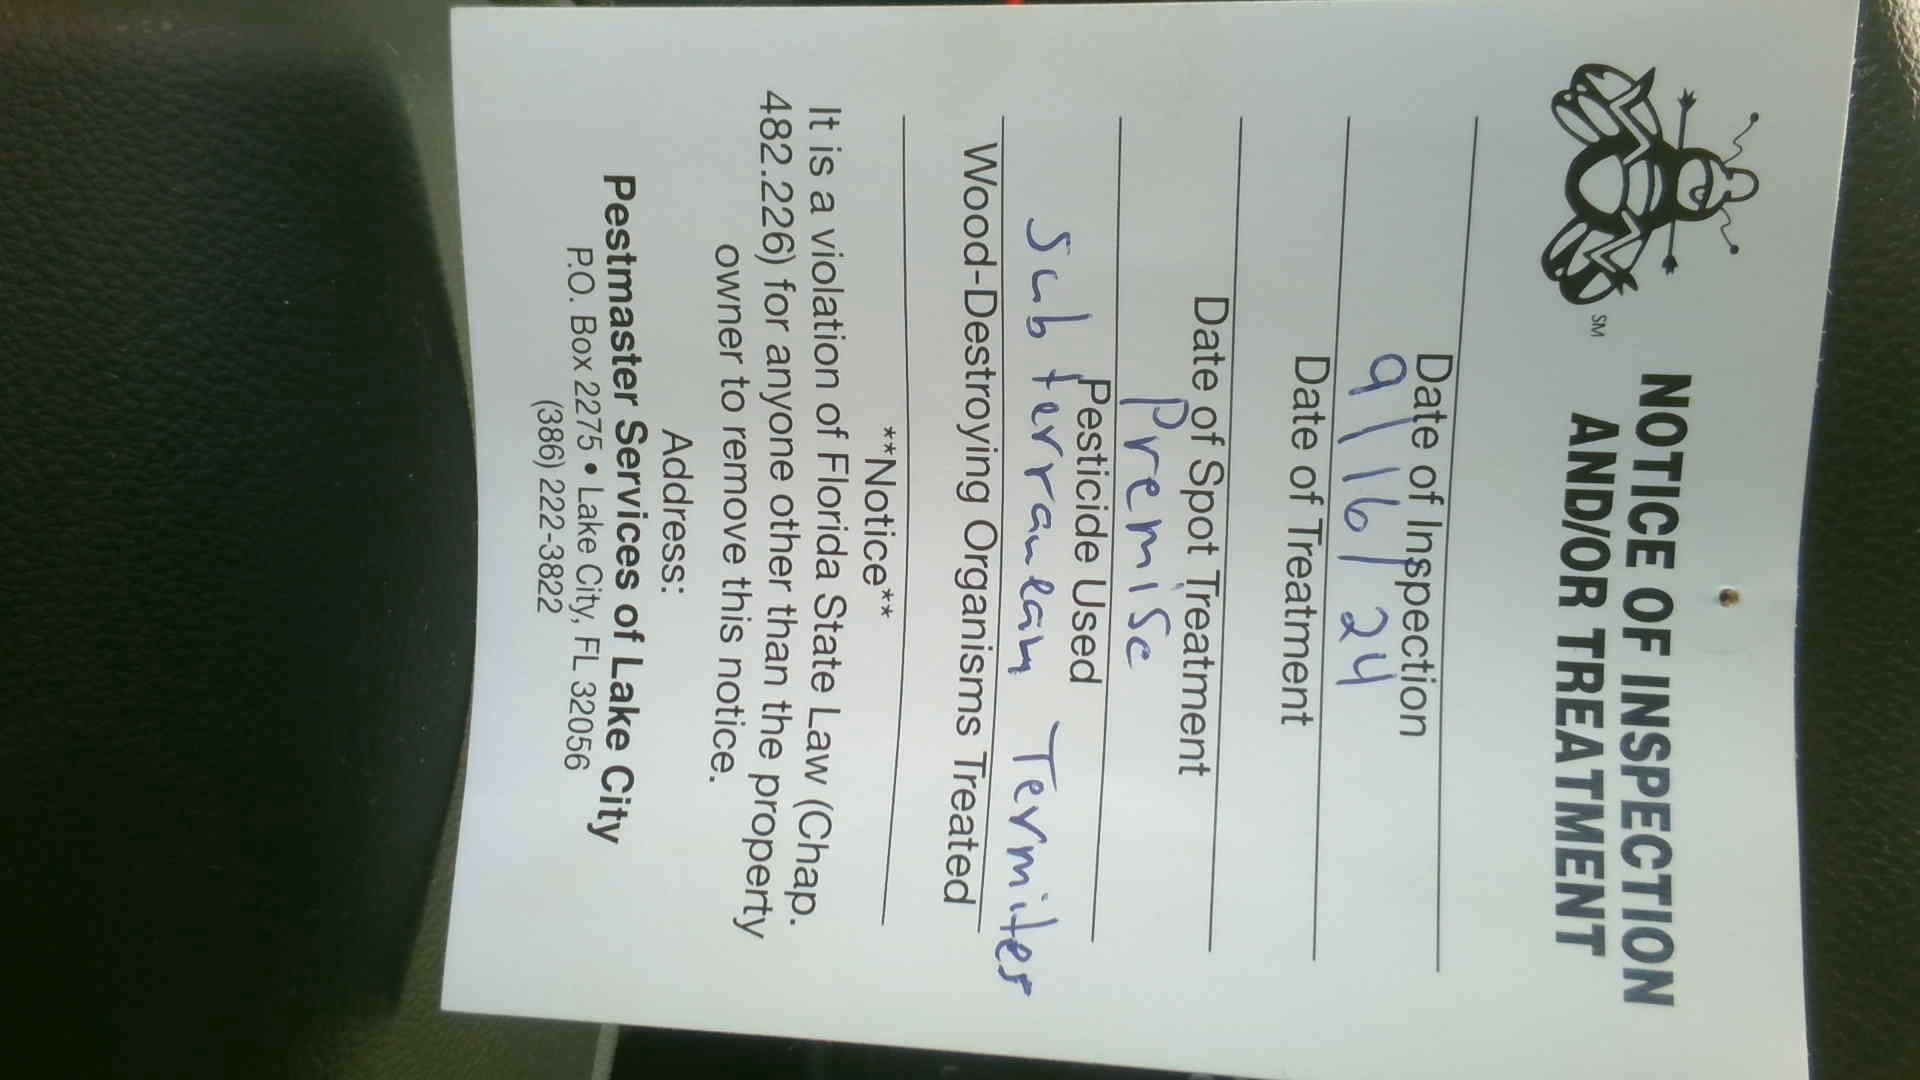 NOTICE OF INSPECTION
AND/OR TREATMENT
SM
Date of Inspection
9/16/24
Date of Treatment
Date of Spot Treatment
Premise
Pesticide Used
Subterranean Termites
Wood-Destroying Organisms Treated
**Notice**
It is a violation of Florida State Law (Chap.
482.226) for anyone other than the property
owner to remove this notice.
Address:
Pestmaster Services of Lake City
P.O. Box 2275 • Lake City, FL 32056
(386) 222-3822